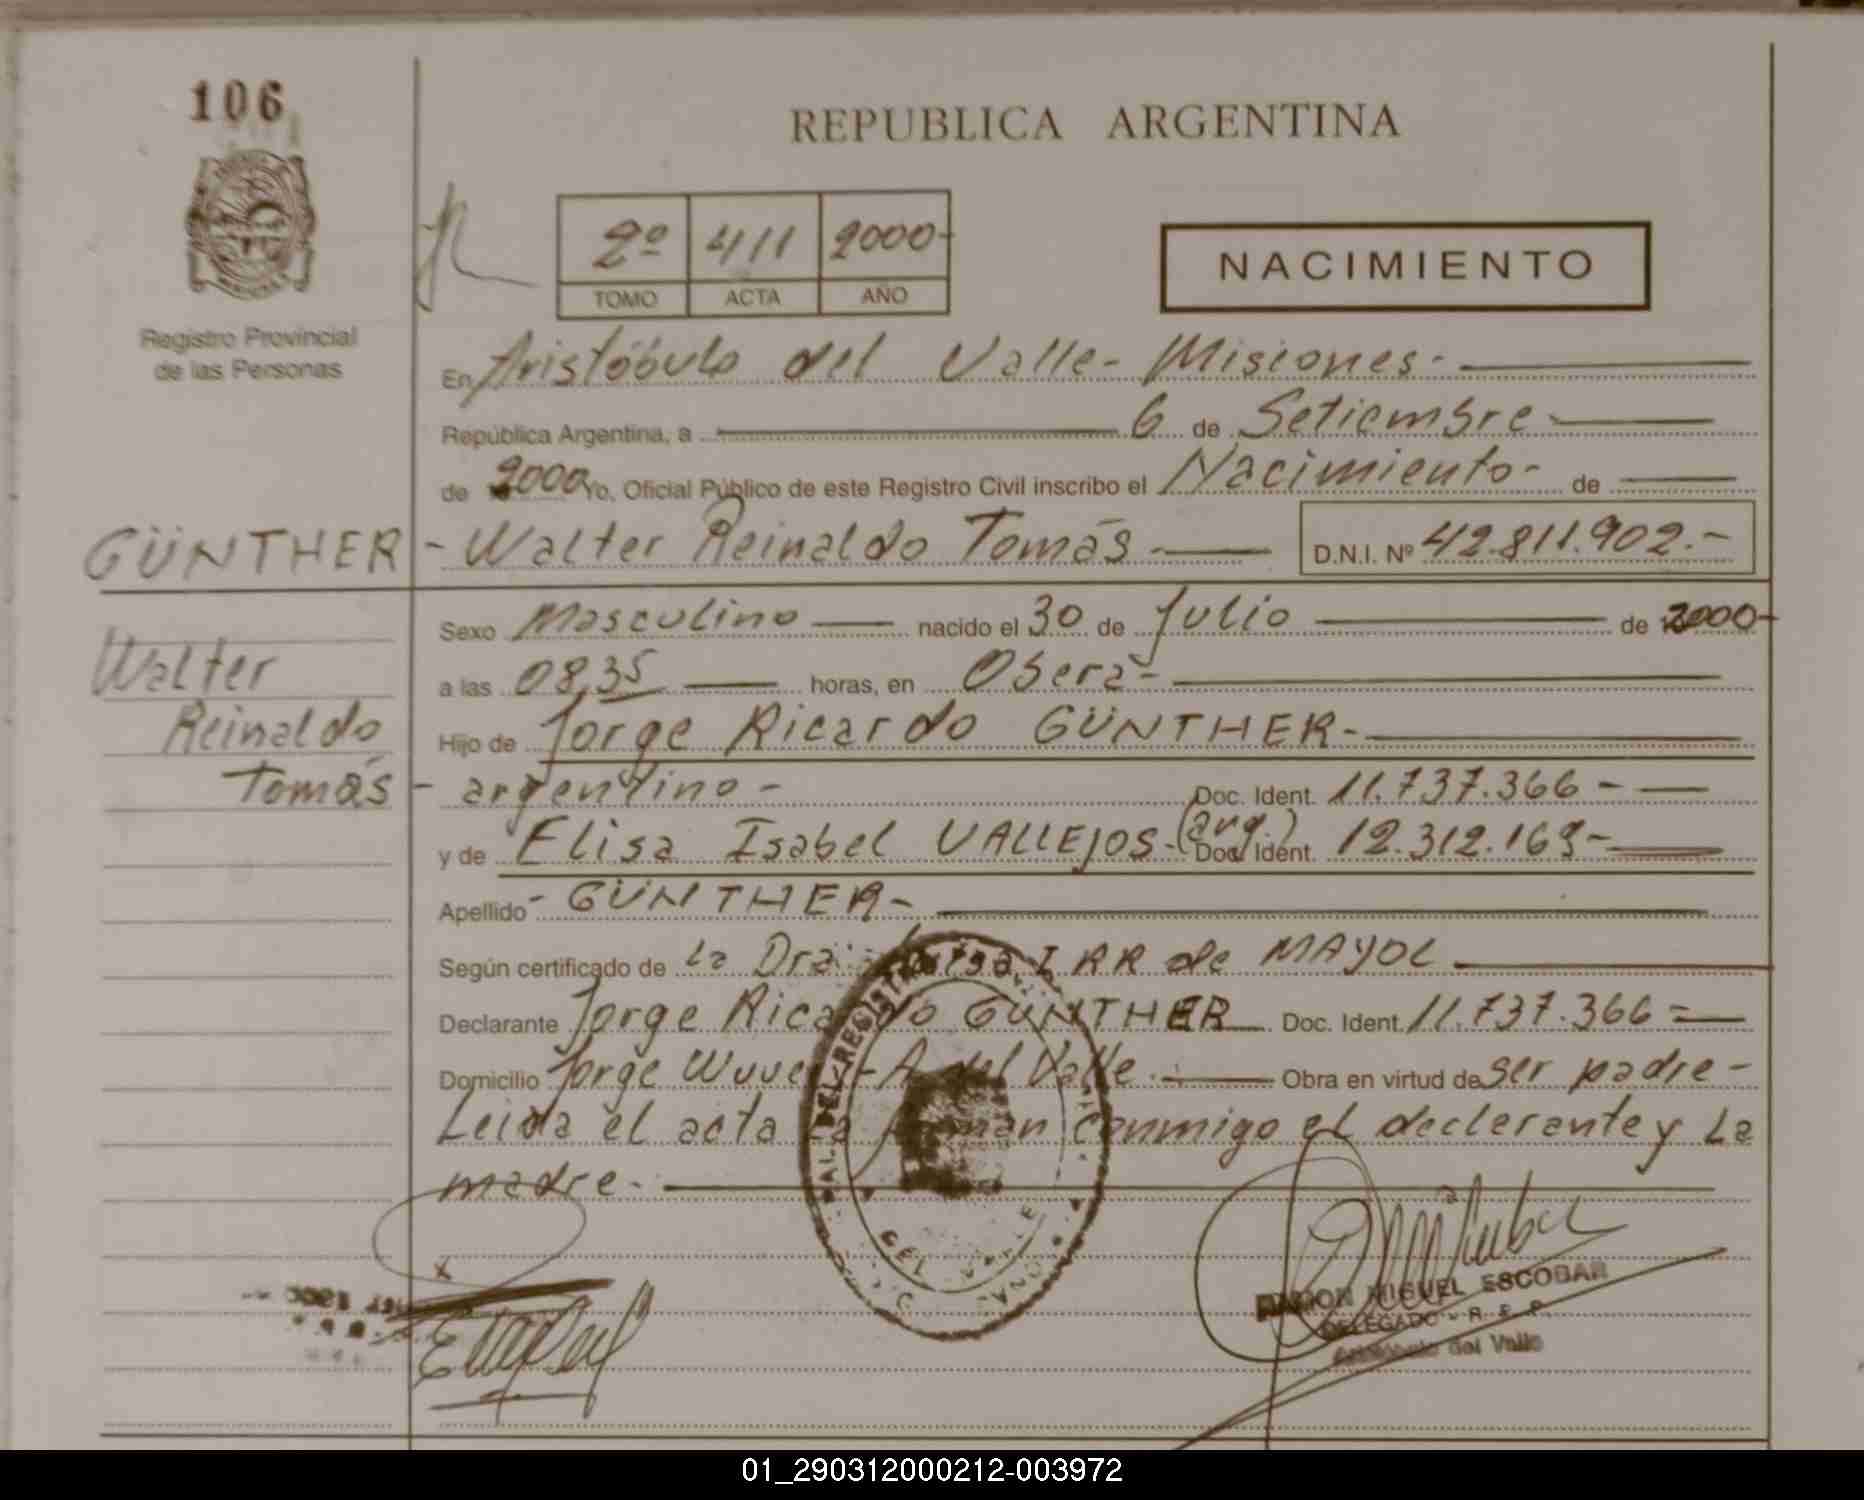 106
REPUBLICA ARGENTINA
Registro Provincial
de las Personas
2º 411 2000-
TOMO ACTA AÑO
NACIMIENTO
En Aristóbulo del Valle- Misiones-
República Argentina, a 6 de Setiembre
de 2000 Yo, Oficial Público de este Registro Civil inscribo el Nacimiento- de
GÜNTHER - Walter Reinaldo Tomás - D.N.I. Nº 42.811.902.-
Walter
Reinaldo
Tomás
Sexo Masculino nacido el 30 de Julio de 2000-
a las 08,35 horas, en Oberá-
Hijo de Jorge Ricardo GÜNTHER-
- argentino - Doc. Ident. 11.737.366 -
y de Elisa Isabel VALLEJOS- (arg.) Doc. Ident. 12.312.169-
Apellido - GÜNTHER-
Según certificado de La Dra. IRR de MAYOL
Declarante Jorge Ricardo GÜNTHER Doc. Ident. 11.737.366=
Domicilio Jorge - A. del Valle.- Obra en virtud de ser padre-
Leida el acta la firman conmigo el declarante y La
madre.-
RAMON MIGUEL ESCOBAR
DELEGADO - R. E. P.
Aristóbulo del Valle
01_290312000212-003972